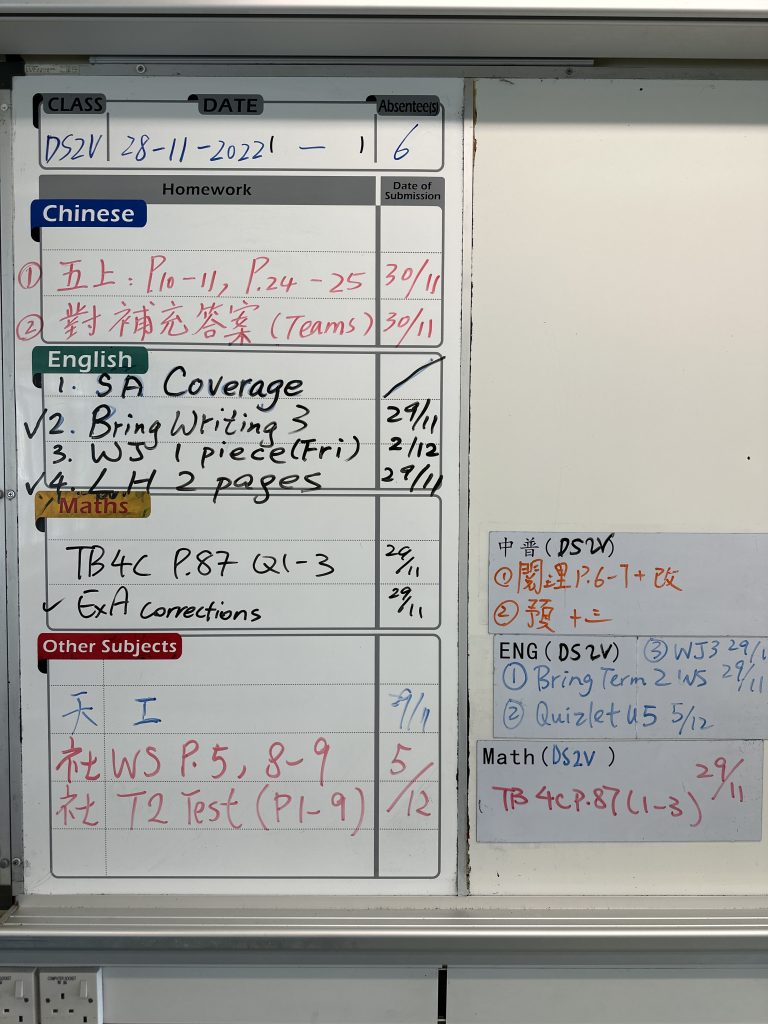 CLASS DATE Absentee(s)
DS2V 28-11-2022 — 6
Homework Date of Submission
Chinese
① 五上：P10-11, P.24-25 30/11
② 對補充答案 (Teams) 30/11
English
1. SA Coverage
✓2. Bring Writing 3 29/11
3. WJ 1 piece (Fri) 2/12
✓4. L.H 2 pages 29/11
Maths
TB4C P.87 Q1-3 29/11
✓ ExA corrections 29/11
Other Subjects
工
社 WS P.5, 8-9 5/12
社 T2 Test (P1-9)
中普(DS2V)
①閱理P.6-7+改
②預十三
ENG(DS2V) ③WJ3 29/1
①Bring Term 2 WS 29/11
②Quizlet U5 5/12
Math(DS2V)
TB 4C P.87 (1-3) 29/11
COMPUTER SOCKET